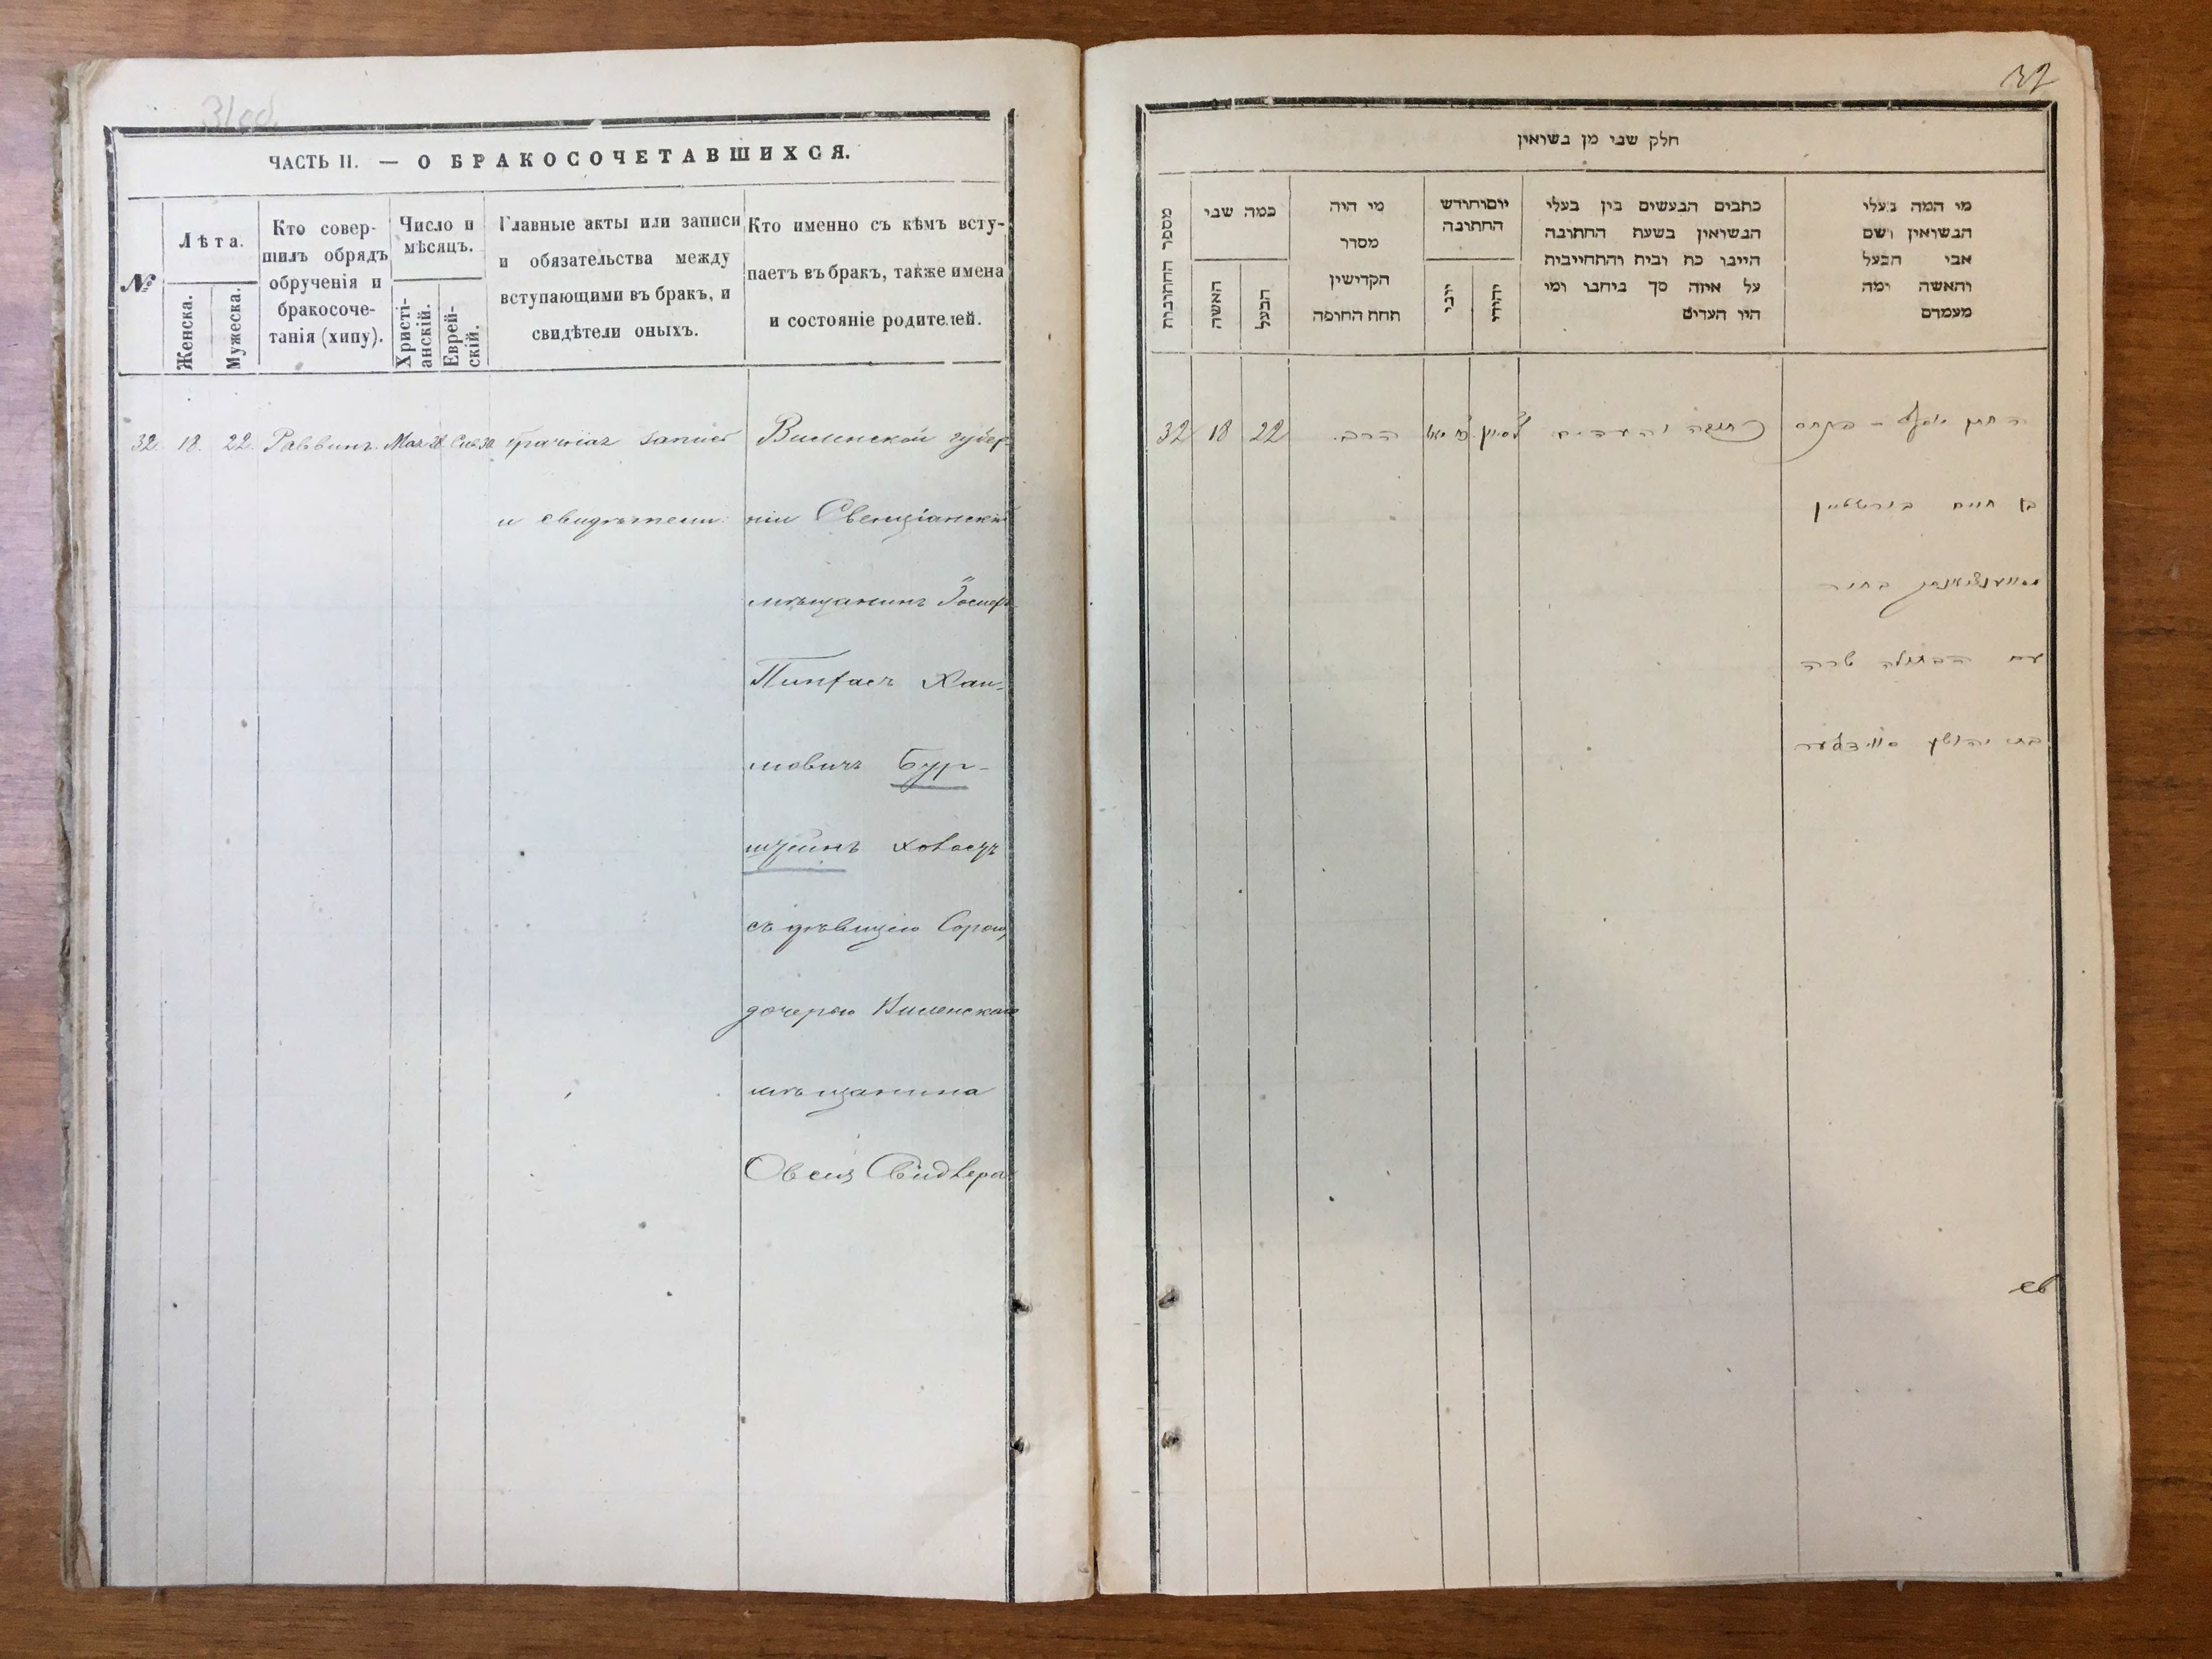 31об.
ЧАСТЬ II. — О БРАКОСОЧЕТАВШИХСЯ.
№
Лѣта.
Женска.
Мужеска.
Кто совер-
шилъ обрядъ
обрученія и
бракосоче-
танія (хипу).
Число и
мѣсяцъ.
Христі-
анскій.
Еврей-
скій.
Главные акты или записи
и обязательства между
вступающими въ бракъ, и
свидѣтели оныхъ.
Кто именно съ кѣмъ всту-
паетъ въ бракъ, также имена
и состояніе родителей.
32. 18. 22. Раввинъ. Мая 28. Сив. 30 брачная запись Виленской губер
и свидѣтели ніи Свенціанскій
мѣщанинъ
Пинхасъ Хаи-
мовичъ Бур-
штейнъ холостъ
съ дѣвицею Сорою,
дочерью Виленскаго
мѣщанина
Овсея Свидлера
32
חלק שני מן נשואין
מספר החתונות
כמה שני
האשה
הבעל
מי היה
מסדר
הקדישין
תחת החופה
יוםוחודש
החתונה
יוני
יהודי
כתבים הנעשים בין בעלי
הנשואין בשעת החתונה
היינו כח ובית והתחייבית
על איזה סך ביחבו ומי
היו העדים
מי המה בעלי
הנשואין ושם
אבי הבעל
והאשה ומה
מעמדם
32 18 22 הרב כתובה והעדים החתן יוסף - פנחס
בן חיים בורשטיין
בחור
עם הבתולה שרה
בת יהושע סווידלער